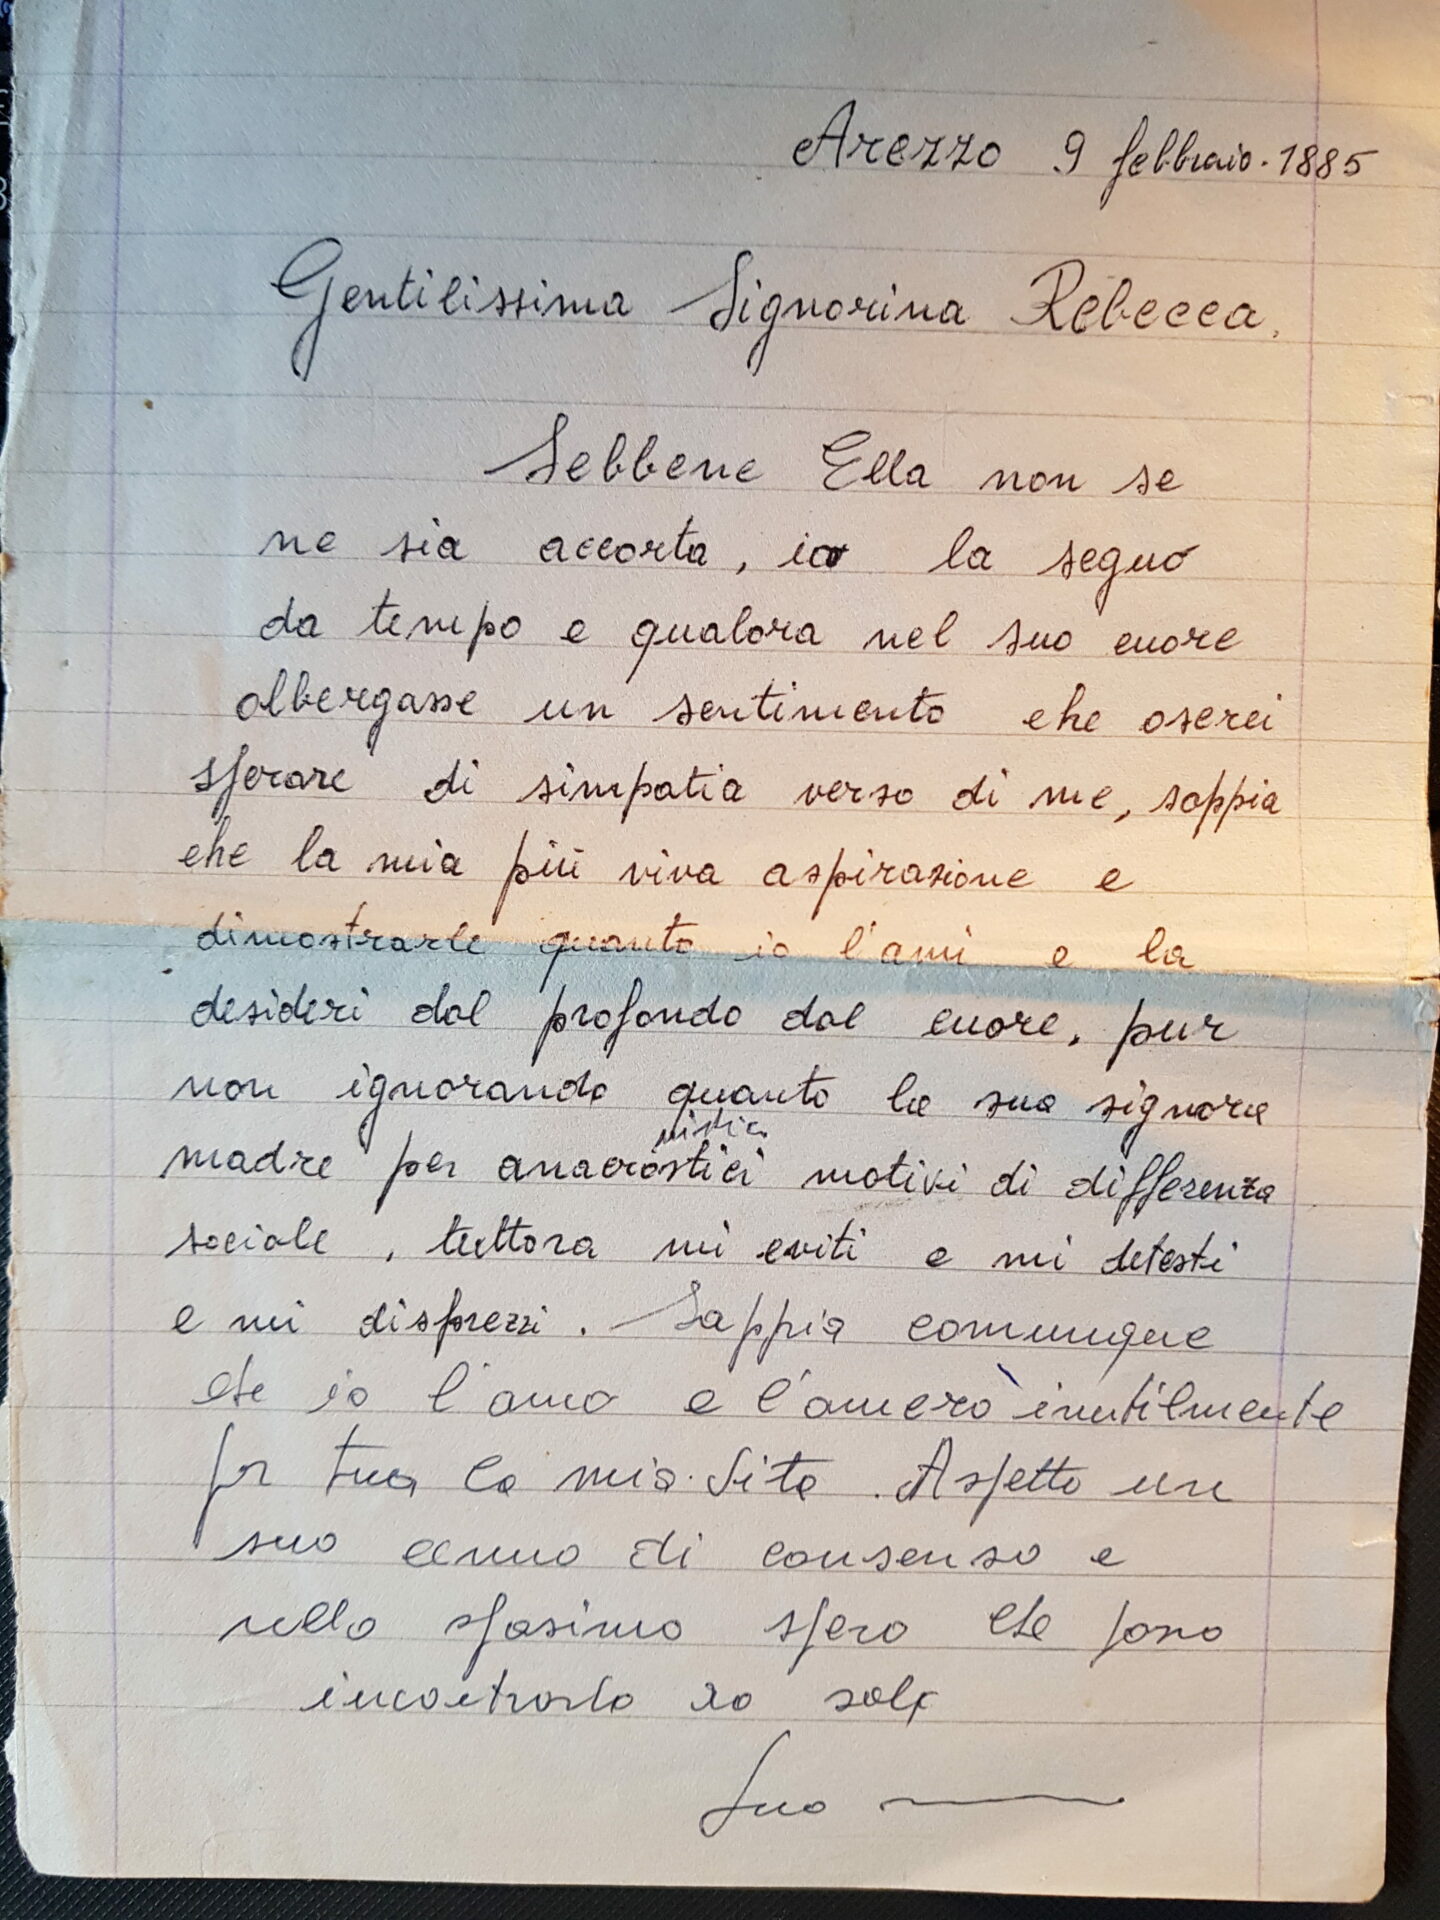 Arezzo 9 febbraio. 1885
Gentilissima Signorina Rebecca.
Sebbene Ella non se
ne sia accorta, io la seguo
da tempo e qualora nel suo cuore
albergasse un sentimento che oserei
sperare di simpatia verso di me, sappia
che la mia più viva aspirazione e
dimostrarle quanto io l'ami e la
desideri dal profondo dal cuore, pur
non ignorando quanto la sua signora
nistici
madre per anacrostici motivi di differenza
sociale, tuttora mi eviti e mi detesti
e mi disprezzi. Sappia comunque
che io l'amo e l'amerò inutilmente
per tua la mia vita. Aspetto un
suo cenno di consenso e
nello spasimo spero che posso
incontrarla da sola
Suo